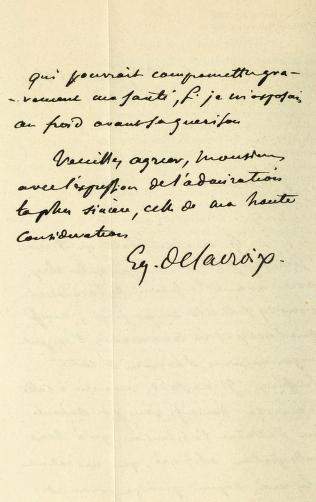 qui pourrait compromettre gra-
-vement ma santé, si je m'exposais
au froid avant sa guérison
Veuillez agréer, Monsieur
avec l'expression de l'admiration
la plus sincère, celle de ma haute
considération
Eg. Delacroix.